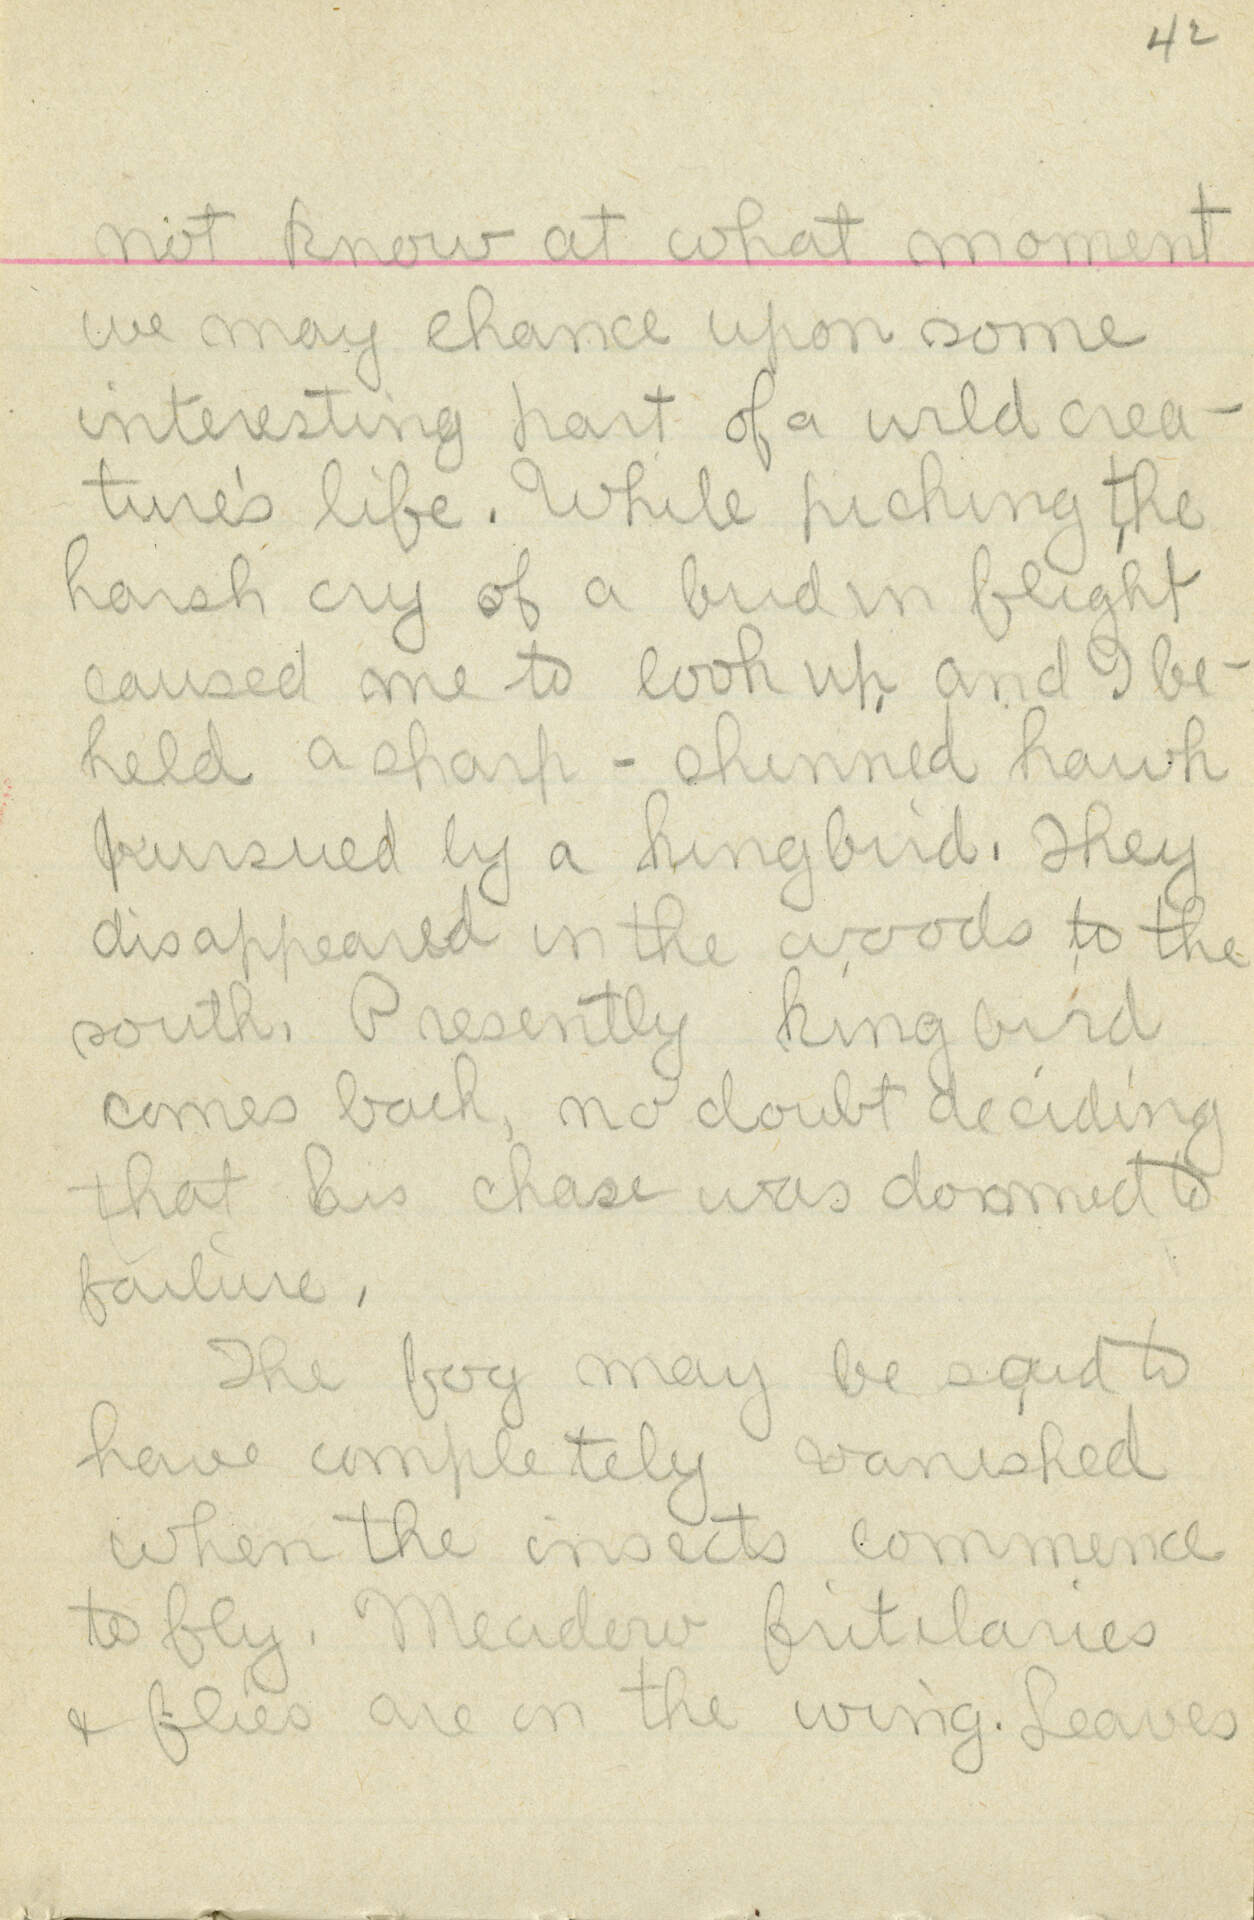 42
not know at what moment
we may chance upon some
interesting part of a wild crea-
ture's life. While picking, the
harsh cry of a bird in flight
caused me to look up, and I be-
held a sharp-shinned hawk
pursued by a kingbird. They
disappeared in the woods to the
south. Presently kingbird
comes back, no doubt deciding
that his chase was doomed to
failure.
The fog may be said to
have completely vanished
when the insects commence
to fly. Meadow fritilaries
& flies are on the wing. Leaves